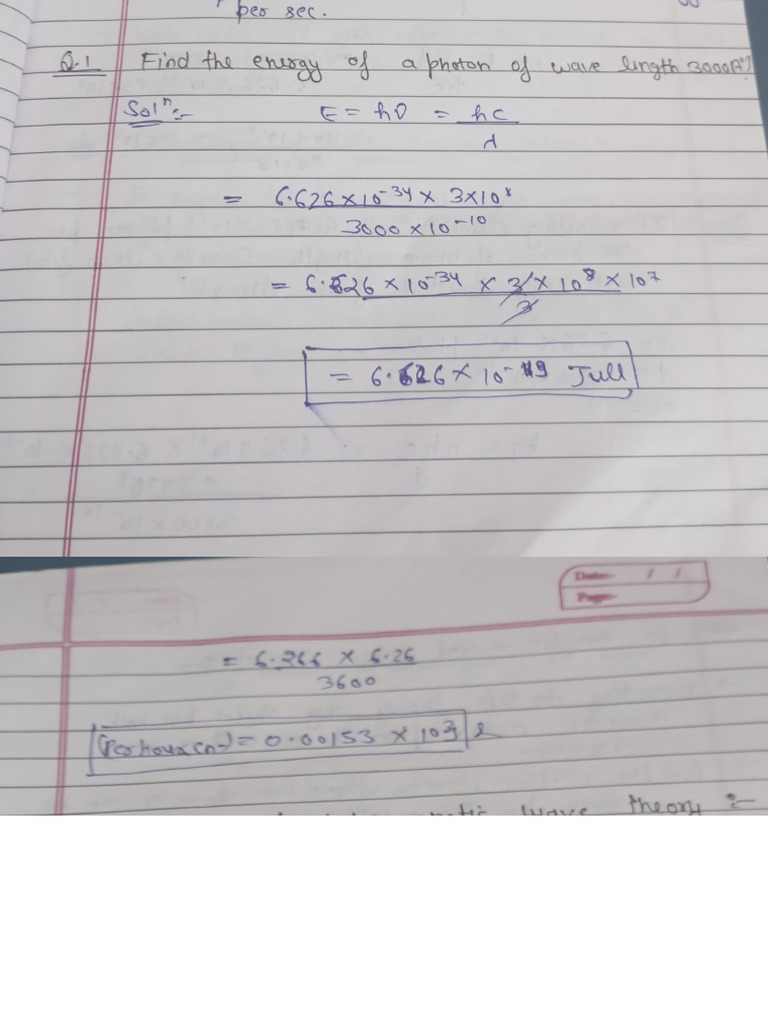 per sec.
Q.1 Find the energy of a photon of wave length 3000A°?
Solⁿ:-
E = hν = hc
λ
= 6.626 × 10⁻³⁴ × 3×10⁸
3000 × 10⁻¹⁰
= 6.626 × 10⁻³⁴ × 3 × 10⁸ × 10⁷
3
= 6.626 × 10⁻¹⁹ Jull
Date / /
Page
= 6.266 × 6.26
3600
(Per hour = 0.00153 × 10
wave theory :-